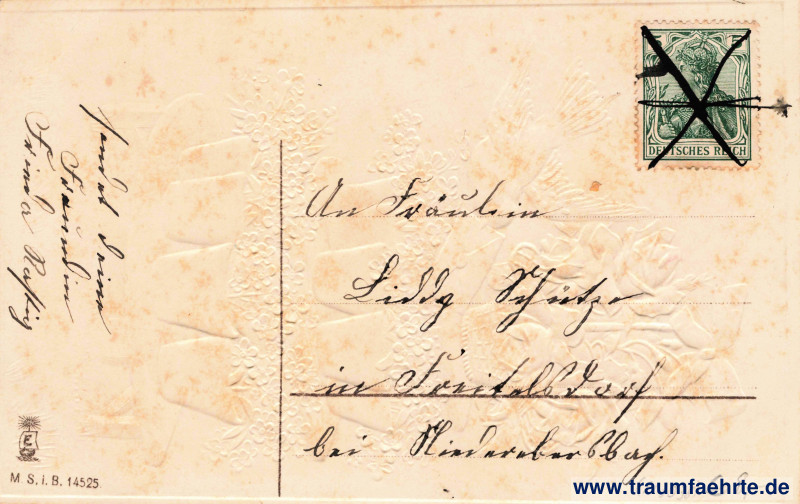 sendet deine
Freundin
Frieda
5 5
DEUTSCHES REICH
An Fräulein
Liddy Schütze
in Freitelsdorf
bei Niederebersbach.
E
M. S. i. B. 14525.
www.traumfaehrte.de